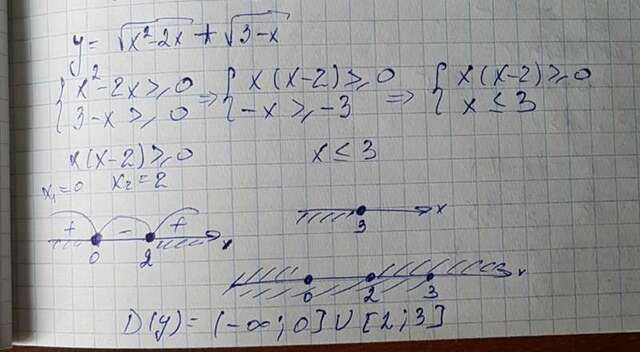 y = √x²-2x + √3-x
{ x²-2x ≥ 0 ⇒ { x(x-2) ≥ 0 ⇒ { x(x-2) ≥ 0
{ 3-x ≥ 0 { -x ≥ -3 { x ≤ 3
x(x-2) ≥ 0 x ≤ 3
x₁=0 x₂=2
+ - + x
0 2
x
3
x
0 2 3
D(y) = (-∞; 0] ∪ [2; 3]